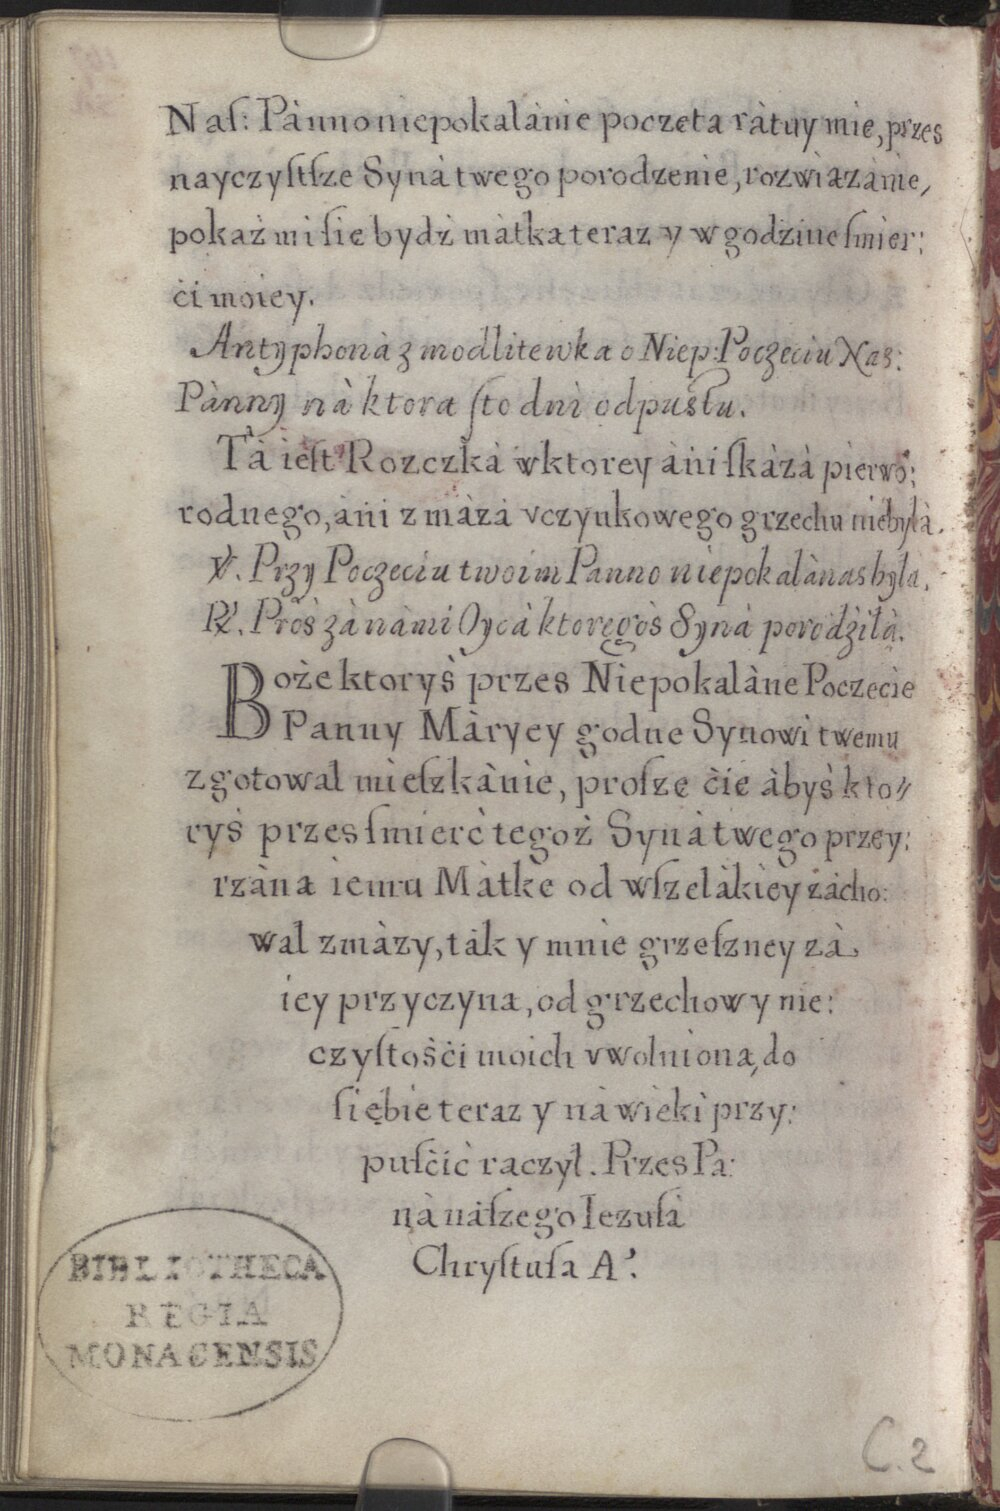 Naſ: Pànno niepokalànie poczeta ràtuy mie, przes
nayczyſtſze Synà twego porodzenie, rozwiązànie,
pokaż mi ſie bydź màtką teraz y w godzine ſmier:
ċi moiey.
Antyphonà z modlitewką o Niep: Poczeciu Nas:
Pànny nà ktora ſto dni odpuſtu.
Tà ieſt Rozczkà w ktorey àni ſkàzà pierwo:
rodnego, àni zmàzà vczynkowego grzechu niebyłà.
℣. Przy Poczeciu twoim Panno niepokalànas była.
℟. Proś zà nàmi Oycà ktoregoś Synà porodźiłà.
Boże ktoryś przes Niepokalàne Poczecie
Panny Màryey godne Synowi twemu
zgotował mieſzkànie, proſze ċie àbyś kto〃
ryś przes ſmierć tegoż Synà twego przey:
rzàną iemu Màtke od wſzelàkiey zàcho:
wal zmàzy, tàk y mnie grzeſzney zà
iey przyczyną, od grzechow y nie:
czyſtośċi moich vwolnioną, do
ſiębie teraz y nà wieki przy:
puſċić raczył. Przes Pa:
nà nàſzego Iezuſà
Chryſtuſa A?.
BIBLIOTHECA
REGIA
MONACENSIS
C. 2